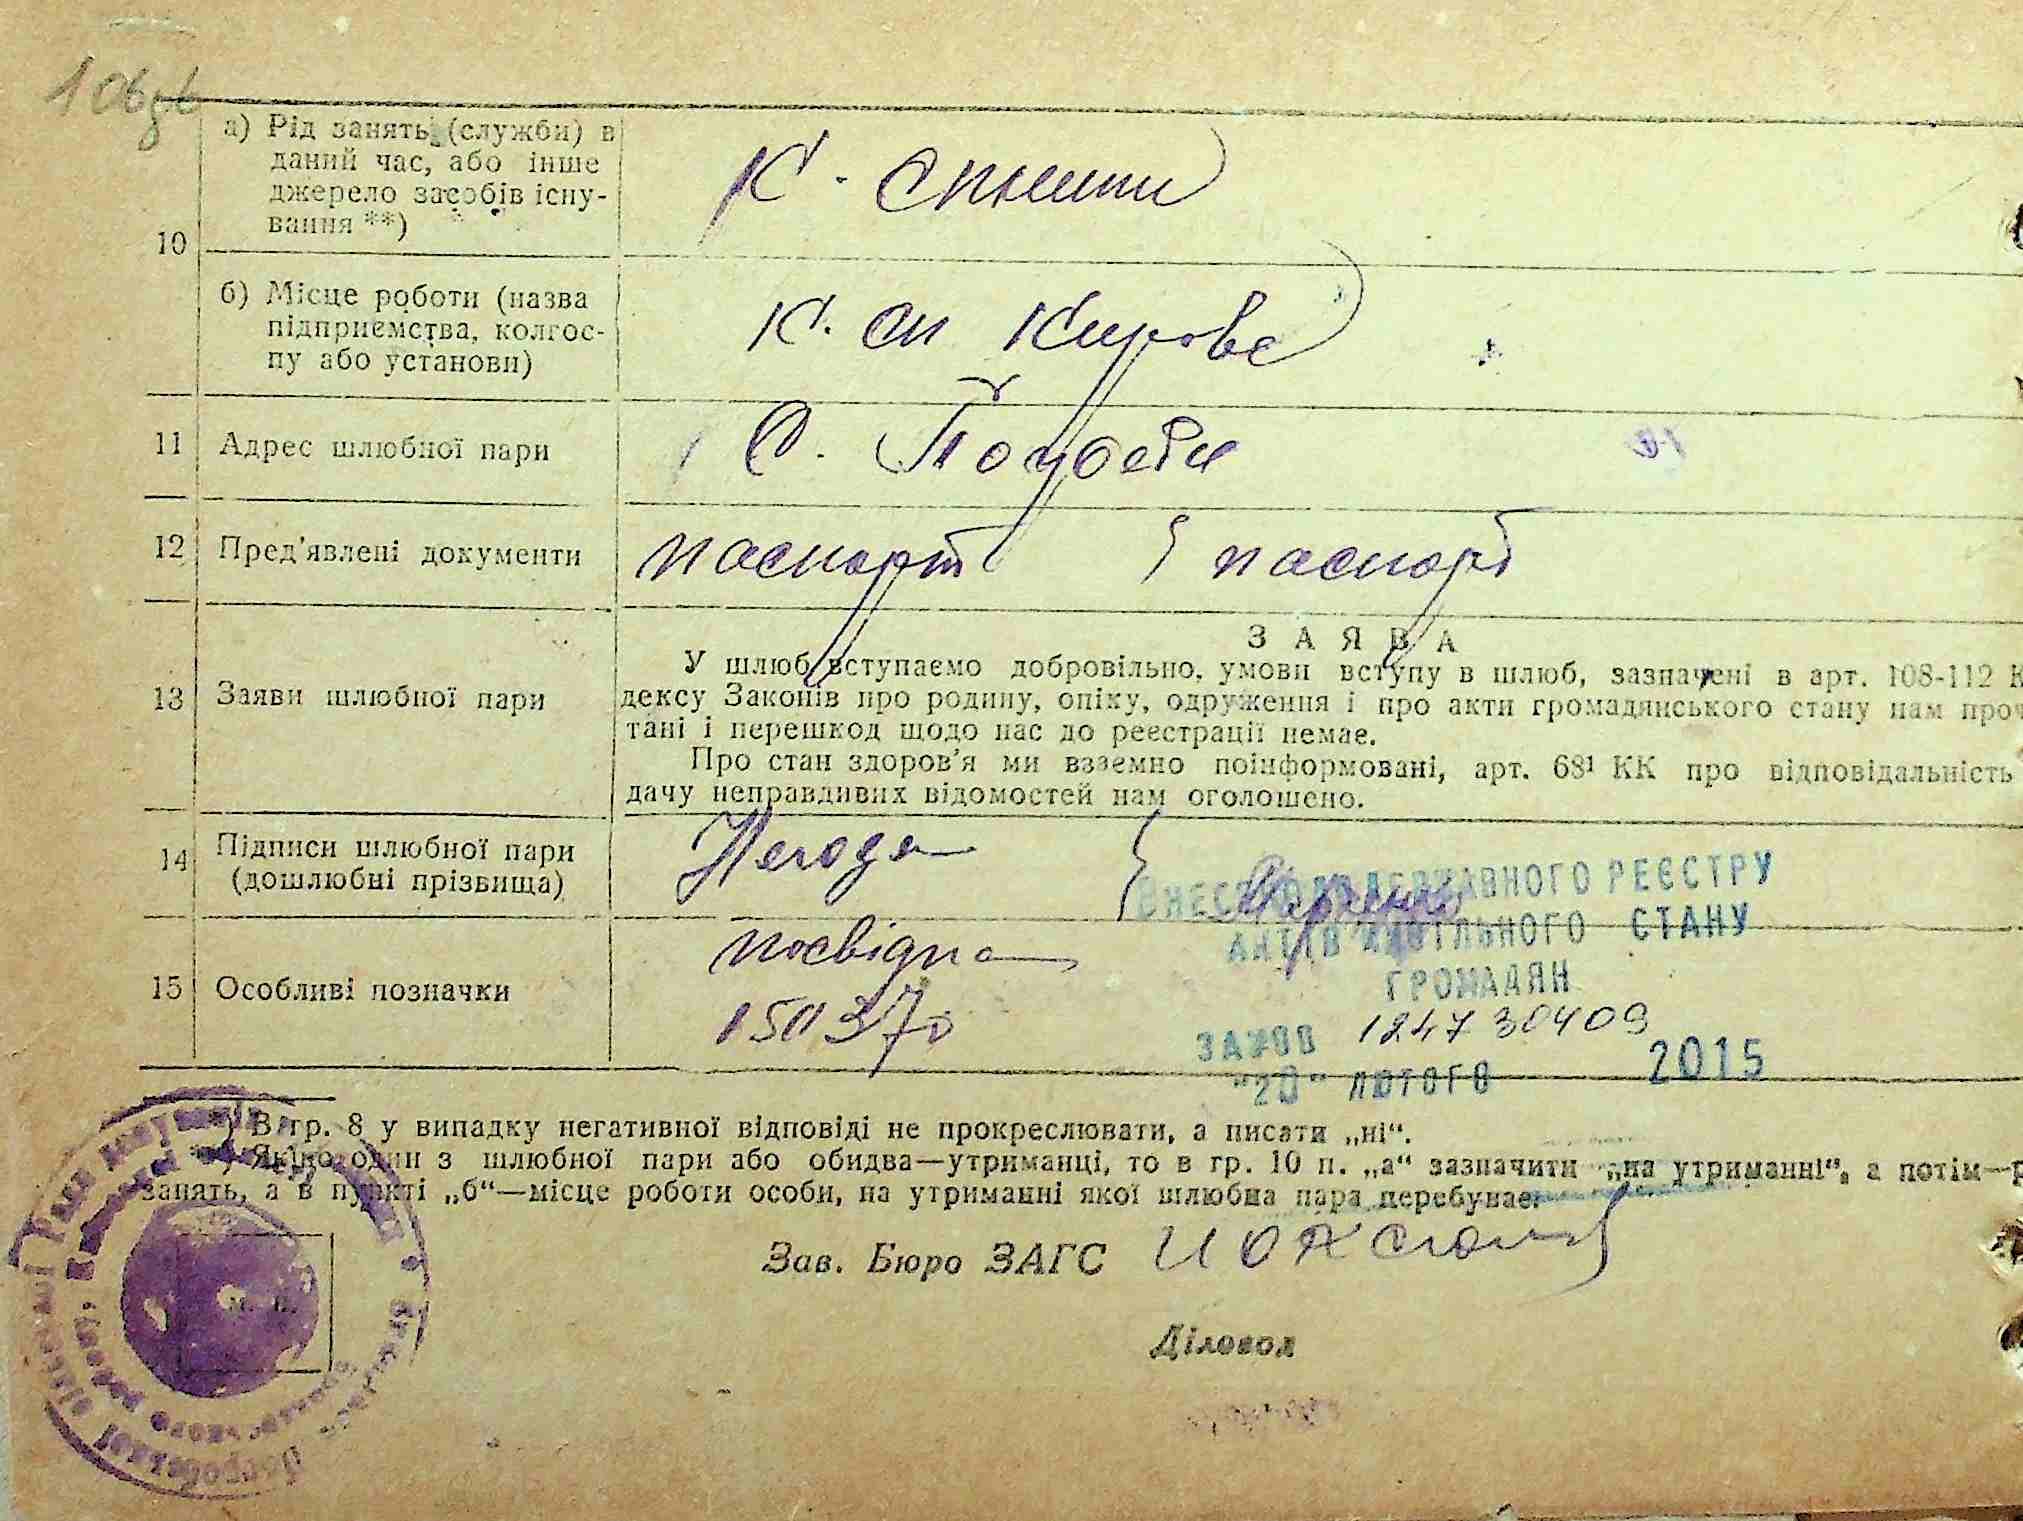 а) Рід занять (служби) в
даний час, або інше
джерело засобів існу-
вання **)
10
б) Місце роботи (назва
підприємства, колгос-
пу або установи)
К. ім Кірова
11 Адрес шлюбної пари
С.
12 Пред'явлені документи паспорт паспорт
З А Я В А
13 Заяви шлюбної пари
У шлюб вступаємо добровільно, умови вступу в шлюб, зазначені в арт. 108-112 К
дексу Законів про родину, опіку, одруження і про акти громадянського стану нам проч
тані і перешкод щодо нас до реєстрації немає.
Про стан здоров'я ми взаємно поінформовані, арт. 68¹ КК про відповідальність
дачу неправдивих відомостей нам оголошено.
14 Підписи шлюбної пари
(дошлюбні прізвища)
Негода
ДЕРЖАВНОГО РЕЄСТРУ
АКТІВ ЦИВІЛЬНОГО СТАНУ
ГРОМАДЯН
15 Особливі позначки
124730409
"20" ЛЮТОГО 2015
*) В гр. 8 у випадку негативної відповіді не прокреслювати, а писати „ні“.
**) Якщо один з шлюбної пари або обидва—утриманці, то в гр. 10 п. „а“ зазначити „на утриманні“, а потім—р
занять, а в пункті „б“—місце роботи особи, на утриманні якої шлюбна пара перебуває.
Зав. Бюро ЗАГС
Діловод